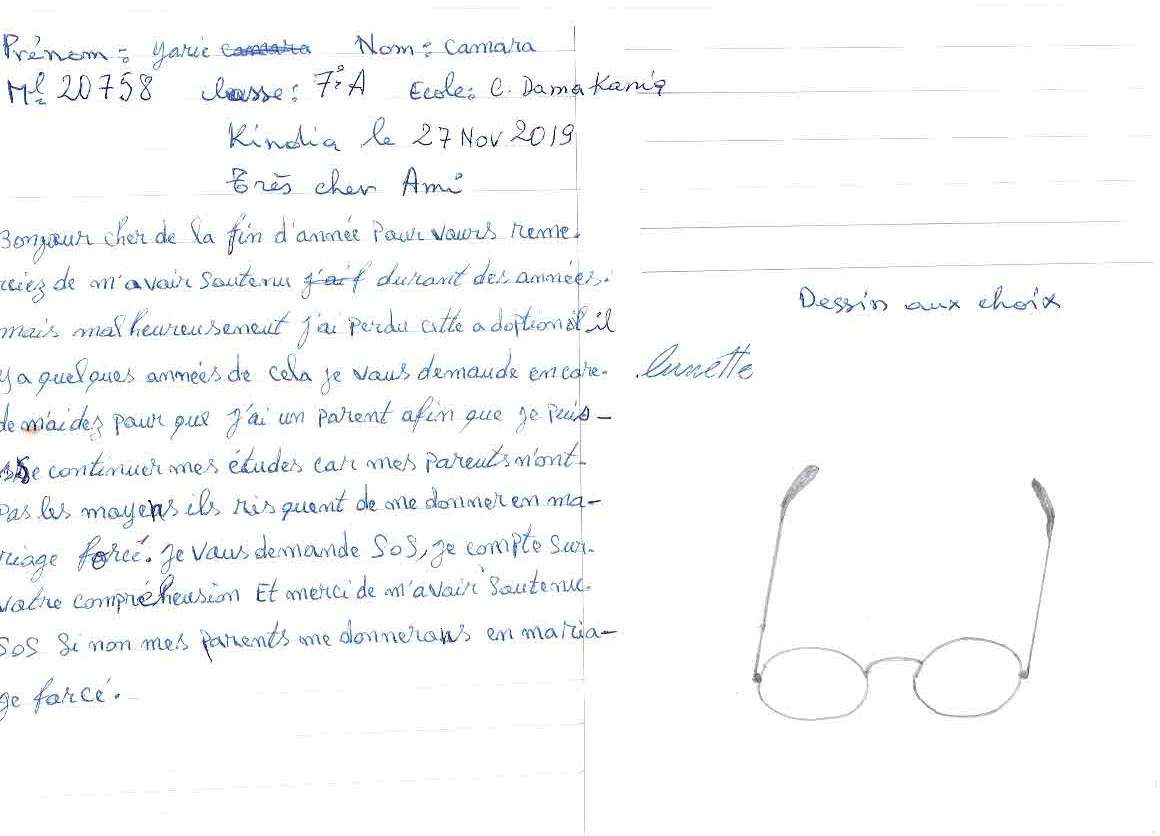 Prénom : Yarie Camara Nom : Camara
Mle 20758 classe : 7è A Ecole : C. Damakania
Kindia le 27 Nov 2019
Très cher Ami
Bonjour cher de la fin d'année Pour vours reme-
rciez de m'avoir Soutenu j'ai durant des années.
mais malheureusement j'ai perdu cette adoption il
y a quelques années de cela je vous demande encore.
de m'aidez pour que j'ai un parent afin que je puis-
se continuer mes études car mes parents n'ont
pas les moyens ils risquent de me donner en ma-
riage forcé. je vous demande SoS, je compte sur
votre compréhension Et merci de m'avoir Soutenu.
SoS Si non mes parents me donnerons en maria-
ge forcé.
Dessin aux choix
lunette